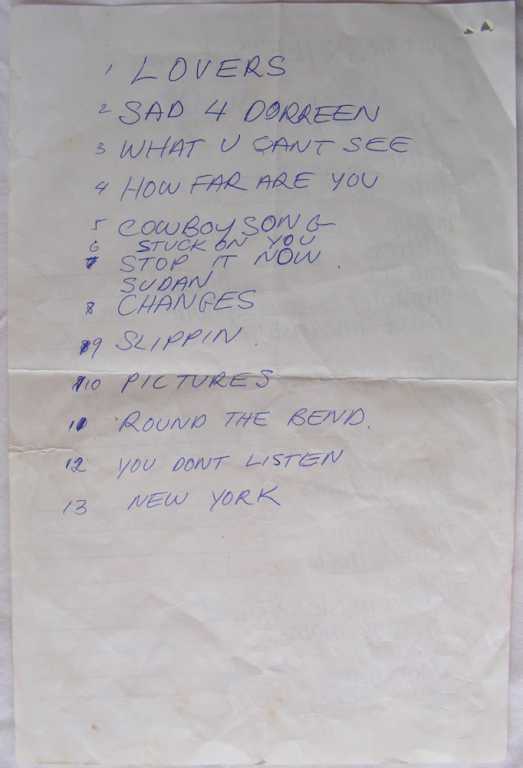 1 LOVERS
2 SAD 4 DORREEN
3 WHAT U CANT SEE
4 HOW FAR ARE YOU
5 COWBOY SONG
6 STUCK ON YOU
7 STOP IT NOW.
SUDAN
8 CHANGES
9 SLIPPIN.
10 PICTURES
11 ROUND THE BEND.
12 YOU DONT LISTEN
13 NEW YORK